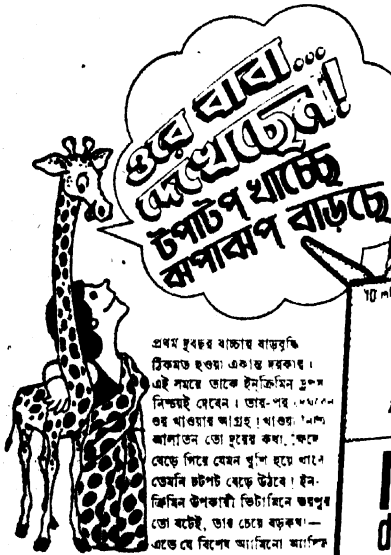 ওরে বাবা...
দেখেছেন!
টপাটপ খাচ্ছে
ঝপাঝপ বাড়ছে
10 ml
প্রথম দুবছর বাচ্চার বাড়বৃদ্ধি
ঠিকমত হওয়া একান্ত দরকার।
এই সময়ে তাকে ইনক্রিমিন ড্রপস
নিশ্চয়ই দেবেন। তার-পর দেখবেন
ওর খাওয়ার আগ্রহ! খাওয়া নিয়ে
জ্বালাতন তো দূরের কথা,
বেড়ে গিয়ে যেমন খুশি হয়ে খাবে
তেমনি চটপট বেড়ে উঠবে! ইন-
ক্রিমিন উপকারী ভিটামিনে ভরপুর
তো বটেই, তার চেয়ে বড়কথা—
এতে যে বিশেষ অ্যামিনো অ্যাসিড